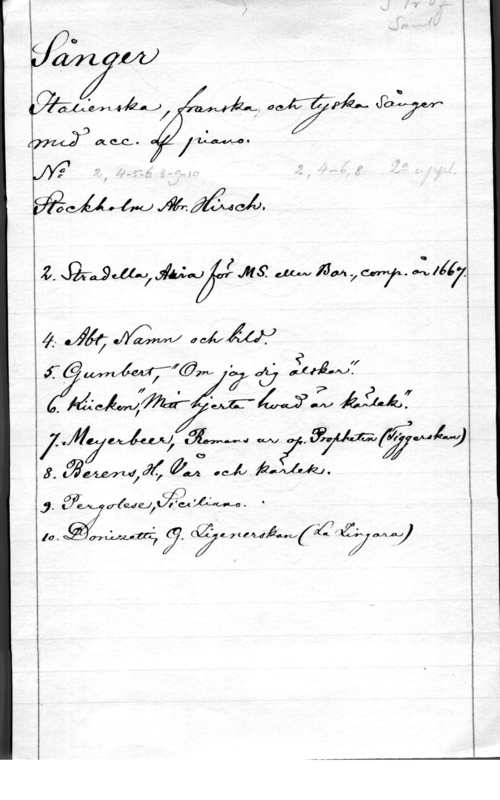 Sånger
Italienska, franska, och tyska Sånger
med acc. af piano.
Nº 2, 4-5-6 8-9-10 2, 4-6, 8 2ª uppl.
Stockholm Abr. Hirsch.
2. Stradella, Aria för MS. eller Bar., comp. år 1667.
4. Abt, Namn och bild.
5. Gumbert, "Om jag dig älskar".
6. Kücken, "Mitt hjerta hvad är kärlek".
7. Meyerbeer, Romans ur op. Propheten (Tiggerskan)
8. Berens, H., Vår och kärlek.
9. Pergolese, Siciliano.
10. Donizetti, G. Zigenerskan (La Zingara)